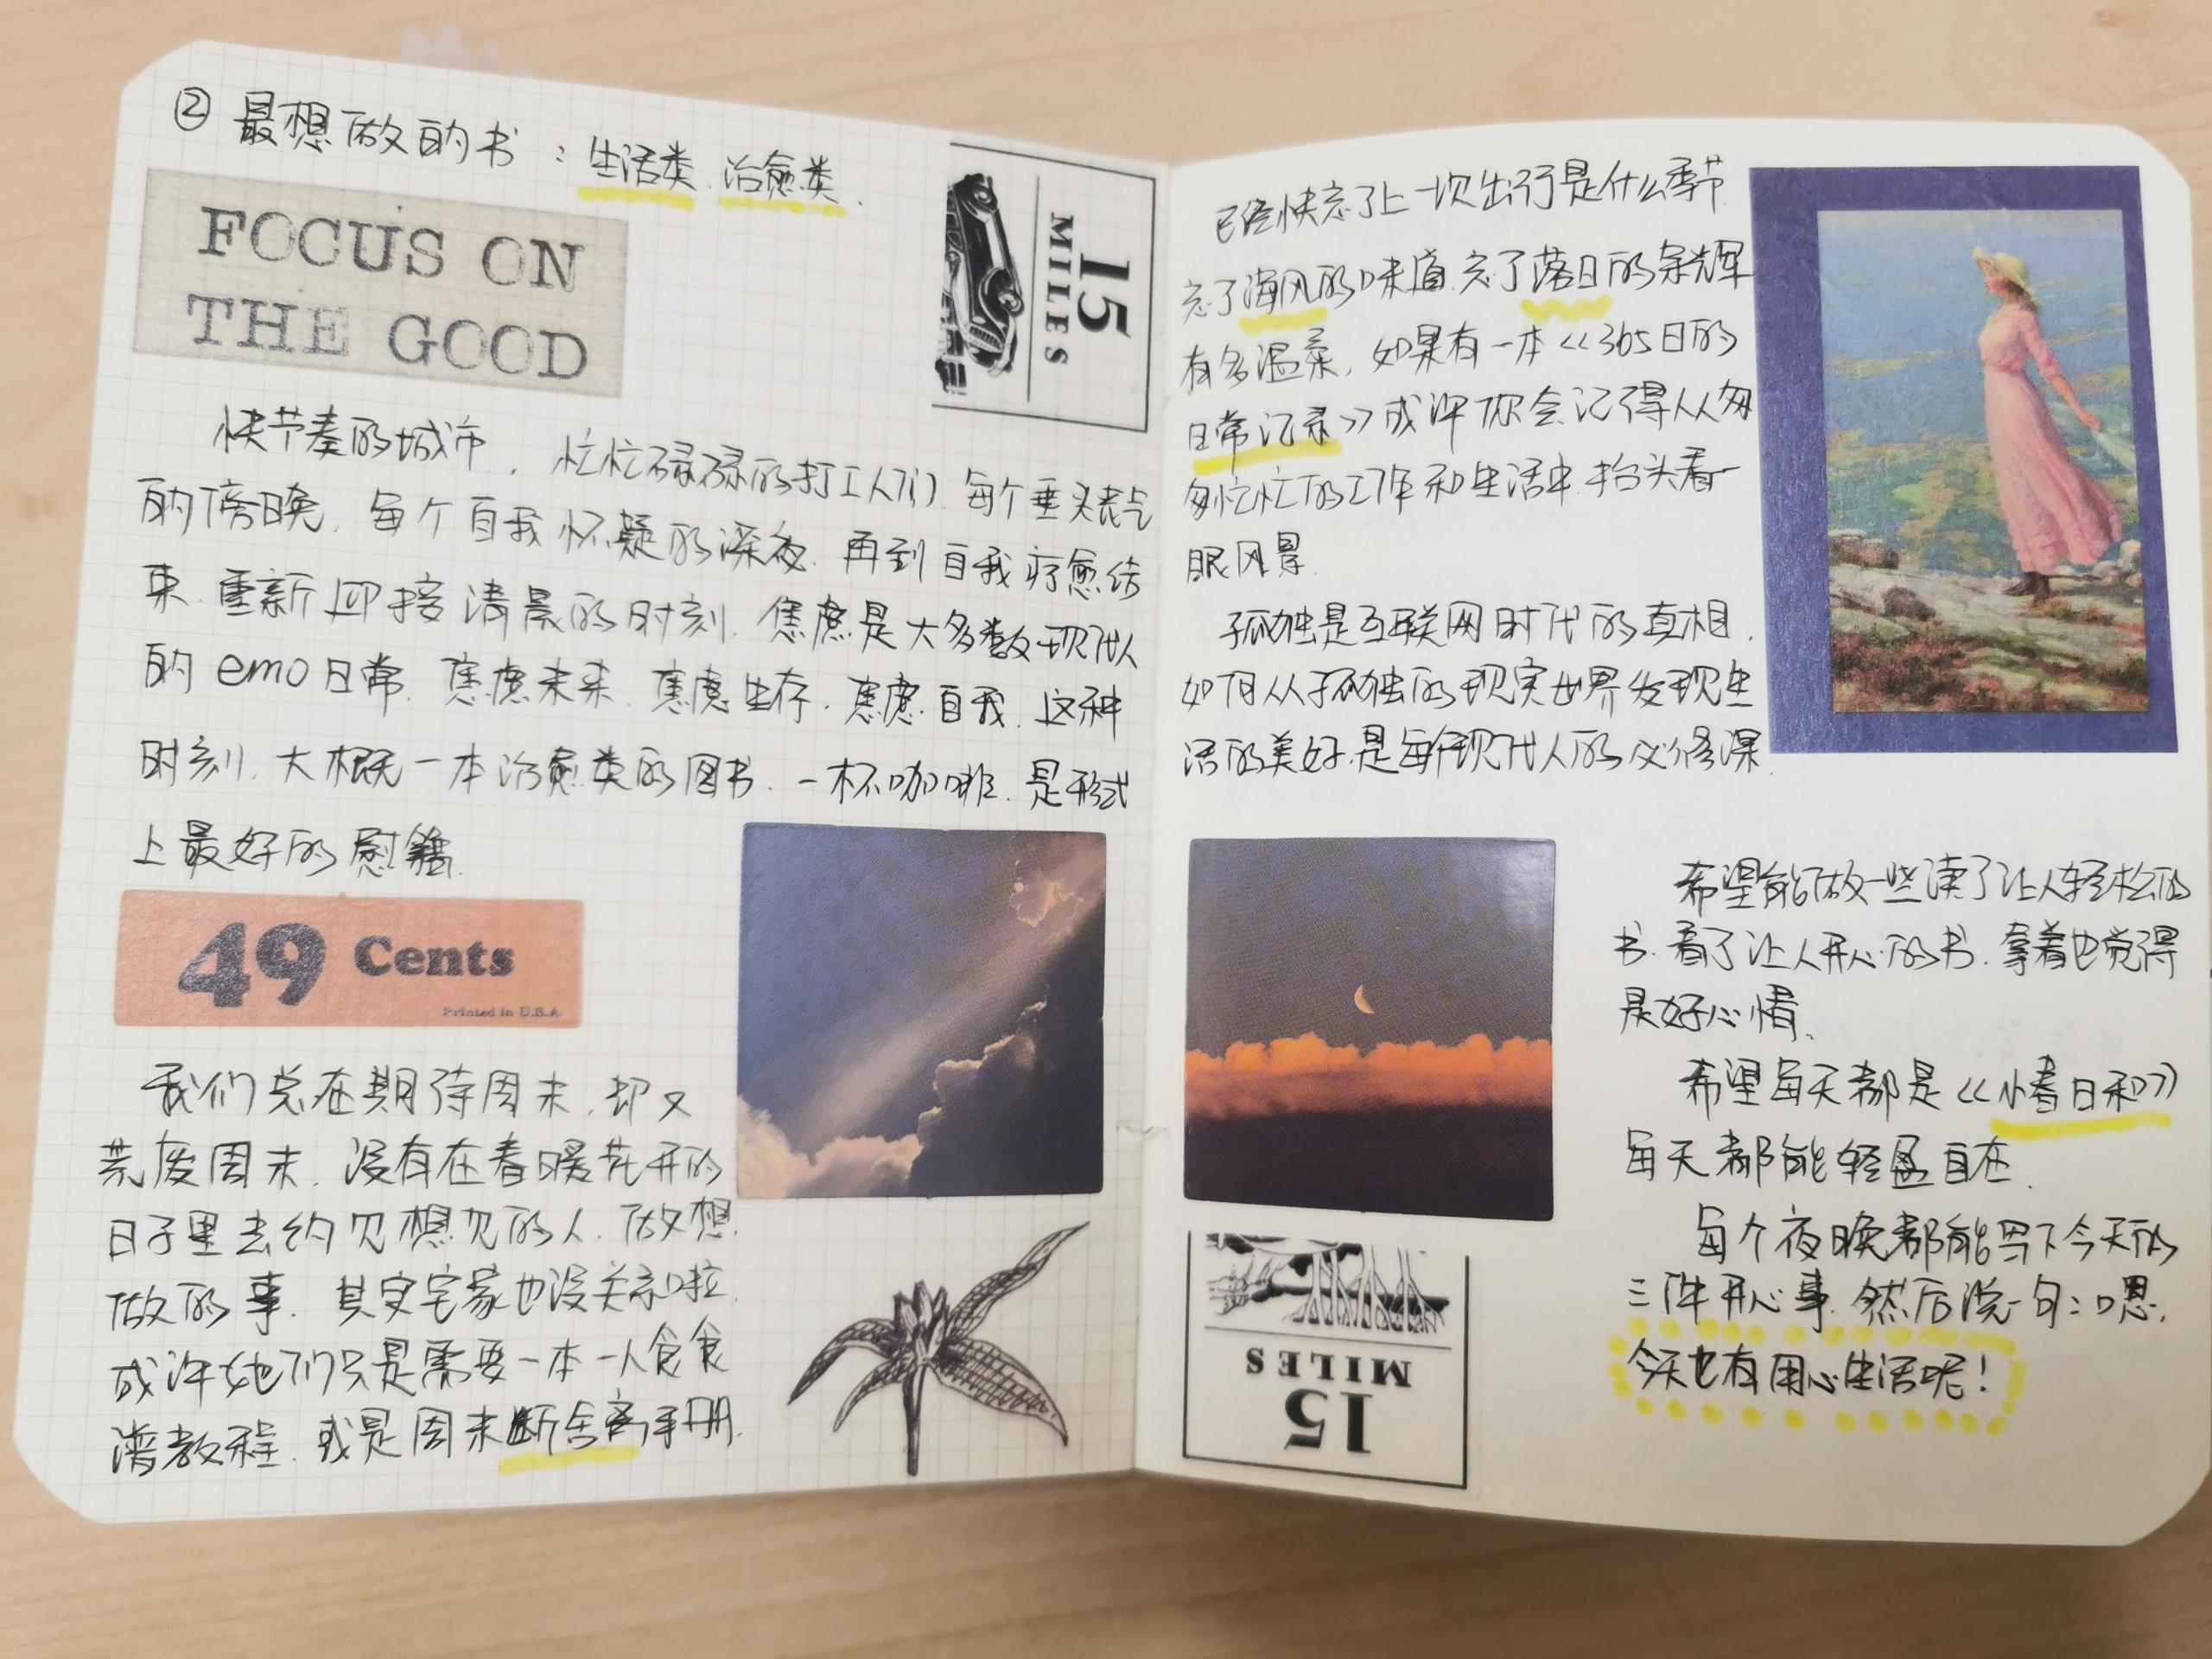 ② 最想做的书：生活类、治愈类、
FOCUS ON
THE GOOD
15
MILES
快节奏的城市，忙忙碌碌的打工人们、每个垂头丧气
的傍晚、每个自我怀疑的深夜、再到自我疗愈结
束、重新迎接清晨的时刻、焦虑是大多数现代人
的emo日常、焦虑未来、焦虑生存、焦虑自我、这种
时刻、大概一本治愈类的图书、一杯咖啡、是形式
上最好的慰籍、
49 Cents
Printed in U.S.A
我们总在期待周末、却又
荒废周末、没有在春暖花开的
日子里去约见想见的人、做想
做的事、其实宅家也没关系啦、
或许她们只是需要一本一人食食
谱教程、或是周末断舍离手册、
已经快忘了上一次出行是什么季节
忘了海风的味道、忘了落日的余辉
有多温柔，如果有一本《365日的
日常记录》或许你会记得从匆
匆忙忙的工作和生活中、抬头看一
眼风景、
孤独是互联网时代的真相，
如何从孤独的现实世界发现生
活的美好、是每个现代人的必修课、
希望能做一些读了让人轻松的
书、看了让人开心的书、拿着也觉得
是好心情、
希望每天都是《小春日和》
每天都能轻盈自在、
每个夜晚都能写下今天的
三件开心事、然后说一句：嗯，
今天也有用心生活呢！
15
MILES